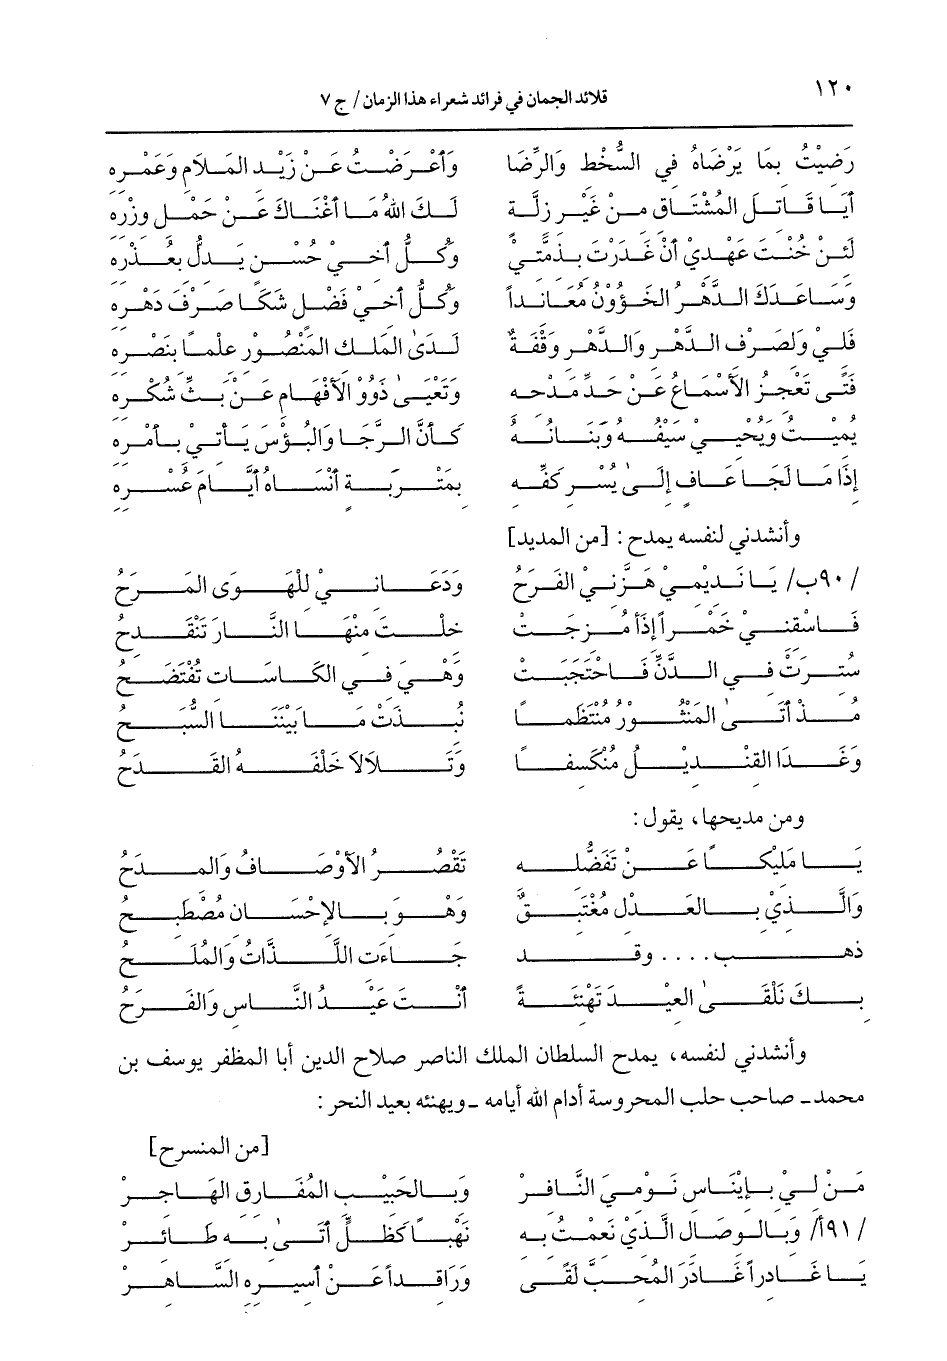 ١٢٠ قلائد الجمان في فرائد شعراء هذا الزمان/ ج ٧
رَضِيْتُ بِمَا يَرْضَاهُ فِي السُّخْطِ وَالرِّضَا وَأَعْرَضْتُ عَنْ زَيْدِ المَلَامِ وَعَمْرِهِ
أَيَا قَاتِلَ المُشْتَاقِ مِنْ غَيْرِ زَلَّةٍ لَكَ اللهُ مَا أَغْنَاكَ عَنْ حَمْلِ وِزْرِهِ
لَئِنْ خُنْتَ عَهْدِي أَنْ غَدَرْتَ بِذِمَّتِيْ وَكُلُّ أَخِيْ حُسْنٍ يَدِلُّ بِغَدْرِهِ
وَسَاعَدَكَ الدَّهْرُ الخَؤُوْنُ مُعَانِداً وَكُلُّ أَخِيْ فَضْلٍ شَكَا صَرْفَ دَهْرِهِ
فَلِيْ وَلِصَرْفِ الدَّهْرِ وَالدَّهْرِ وَقْفَةٌ لَدَىٰ المَلِكِ المَنْصُوْرِ عِلْمًا بِنَصْرِهِ
فَتًى تَعْجِزُ الأَسْمَاعُ عَنْ حَدِّ مَدْحِهِ وَتَعْيَىٰ ذَوُو الأَفْهَامِ عَنْ بَثِّ شُكْرِهِ
يُمِيْتُ وَيُحْيِيْ سَيْفُهُ وَبَنَانُهُ كَأَنَّ الرَّجَا وَالبُؤْسَ يَأْتِيْ بِأَمْرِهِ
إِذَا مَا لَجَا عَافٍ إِلَىٰ يُسْرِ كَفِّهِ بِمَتْرَبَةٍ أَنْسَاهُ أَيَّامَ عُسْرِهِ
وأنشدني لنفسه يمدح : [من المديد]
/٩٠ب/ يَا نَدِيْمِيْ هَزَّنِيْ الفَرَحُ وَدَعَانِيْ لِلْهَوَى المَرَحُ
فَاسْقِنِيْ خَمْراً إِذَا مُزِجَتْ خِلْتَ مِنْهَا النَّارَ تَنْقَدِحُ
سُتِرَتْ فِي الدَّنِّ فَاحْتَجَبَتْ وَهْيَ فِي الكَاسَاتِ تَفْتَضِحُ
مُذْ أَتَىٰ المَنْثُوْرُ مُنْتَظِمًا نُبِذَتْ مَا بَيْنَنَا السُّبَحُ
وَغَدَا القِنْدِيْلُ مُنْكَسِفًا وَتَلَالَا خَلْفَهُ القَدَحُ
ومن مديحها، يقول :
يَا مَلِيْكًا عَنْ تَفَضُّلِهِ تَقْصُرُ الأَوْصَافُ وَالمِدَحُ
وَالَّذِيْ بِالعَدْلِ مُغْتَبِقٌ وَهْوَ بِالإِحْسَانِ مُصْطَبِحُ
ذهب .... وقد جَاءَتِ اللَّذَّاتُ وَالمُلَحُ
بِكَ نَلْقَىٰ العِيْدَ تَهْنِئَةً أَنْتَ عِيْدُ النَّاسِ وَالفَرَحُ
وأنشدني لنفسه، يمدح السلطان الملك الناصر صلاح الدين أبا المظفر يوسف بن
محمد ـ صاحب حلب المحروسة أدام الله أيامه ـ ويهنئه بعيد النحر :
[من المنسرح]
مَنْ لِيْ بِإِيْنَاسِ نَوْمِيَ النَّافِرْ وَبِالحَبِيْبِ المُفَارِقِ الهَاجِرْ
/٩١أ/ وَبِالوِصَالِ الَّذِيْ نَعِمْتُ بِهِ نَهْبًا كَظِلٍّ أَتَىٰ بِهِ طَائِرْ
يَا غَادِراً غَادَرَ المُحِبَّ لَقًى وَرَاقِداً عَنْ أَسِيْرِهِ السَّاهِرْ